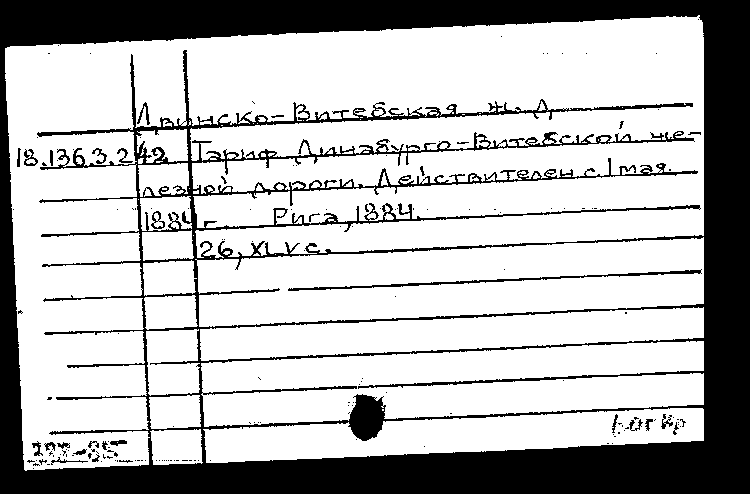 Двинско-Витебская ж. д.
18.136.3.242 Тариф Динабурго-Витебской же-
лезной дороги. Действителен с 1 мая
1884 г. Рига, 1884.
26, XLV с.